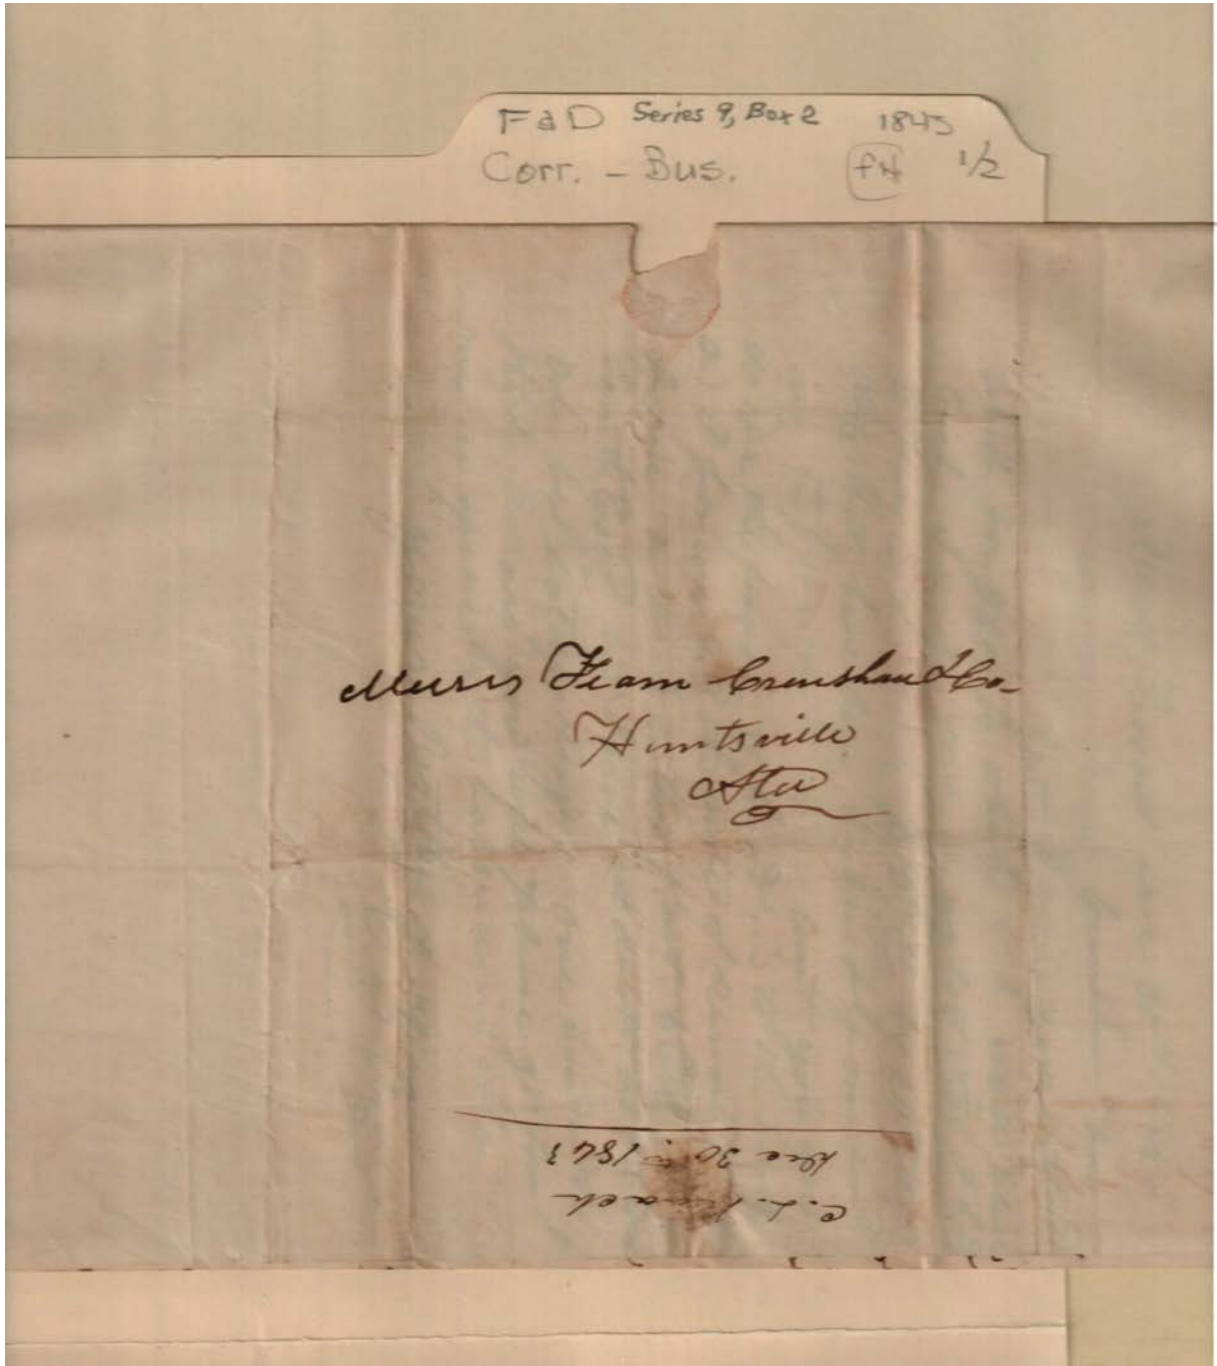 F&D Series 9, Box 2 1843
Corr. - Bus. FN 1/2
Messrs Fearn Crenshaw & Co-
Huntsville
Ala
C. L.
Dec 30th 1843